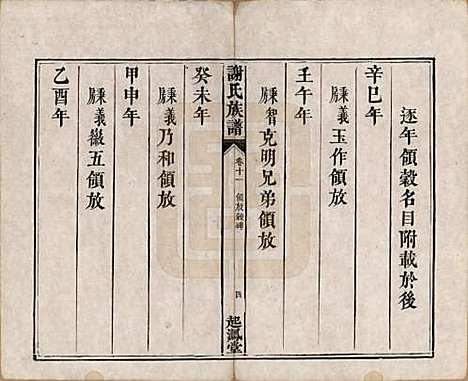 逐年領穀名目附載於後
辛巳年
秉義玉作領放
壬午年
秉智克明兄弟領放
謝氏族譜
卷十一
領放穀碑
四
起鳳堂
癸未年
秉義乃和領放
甲申年
秉義徽五領放
乙酉年